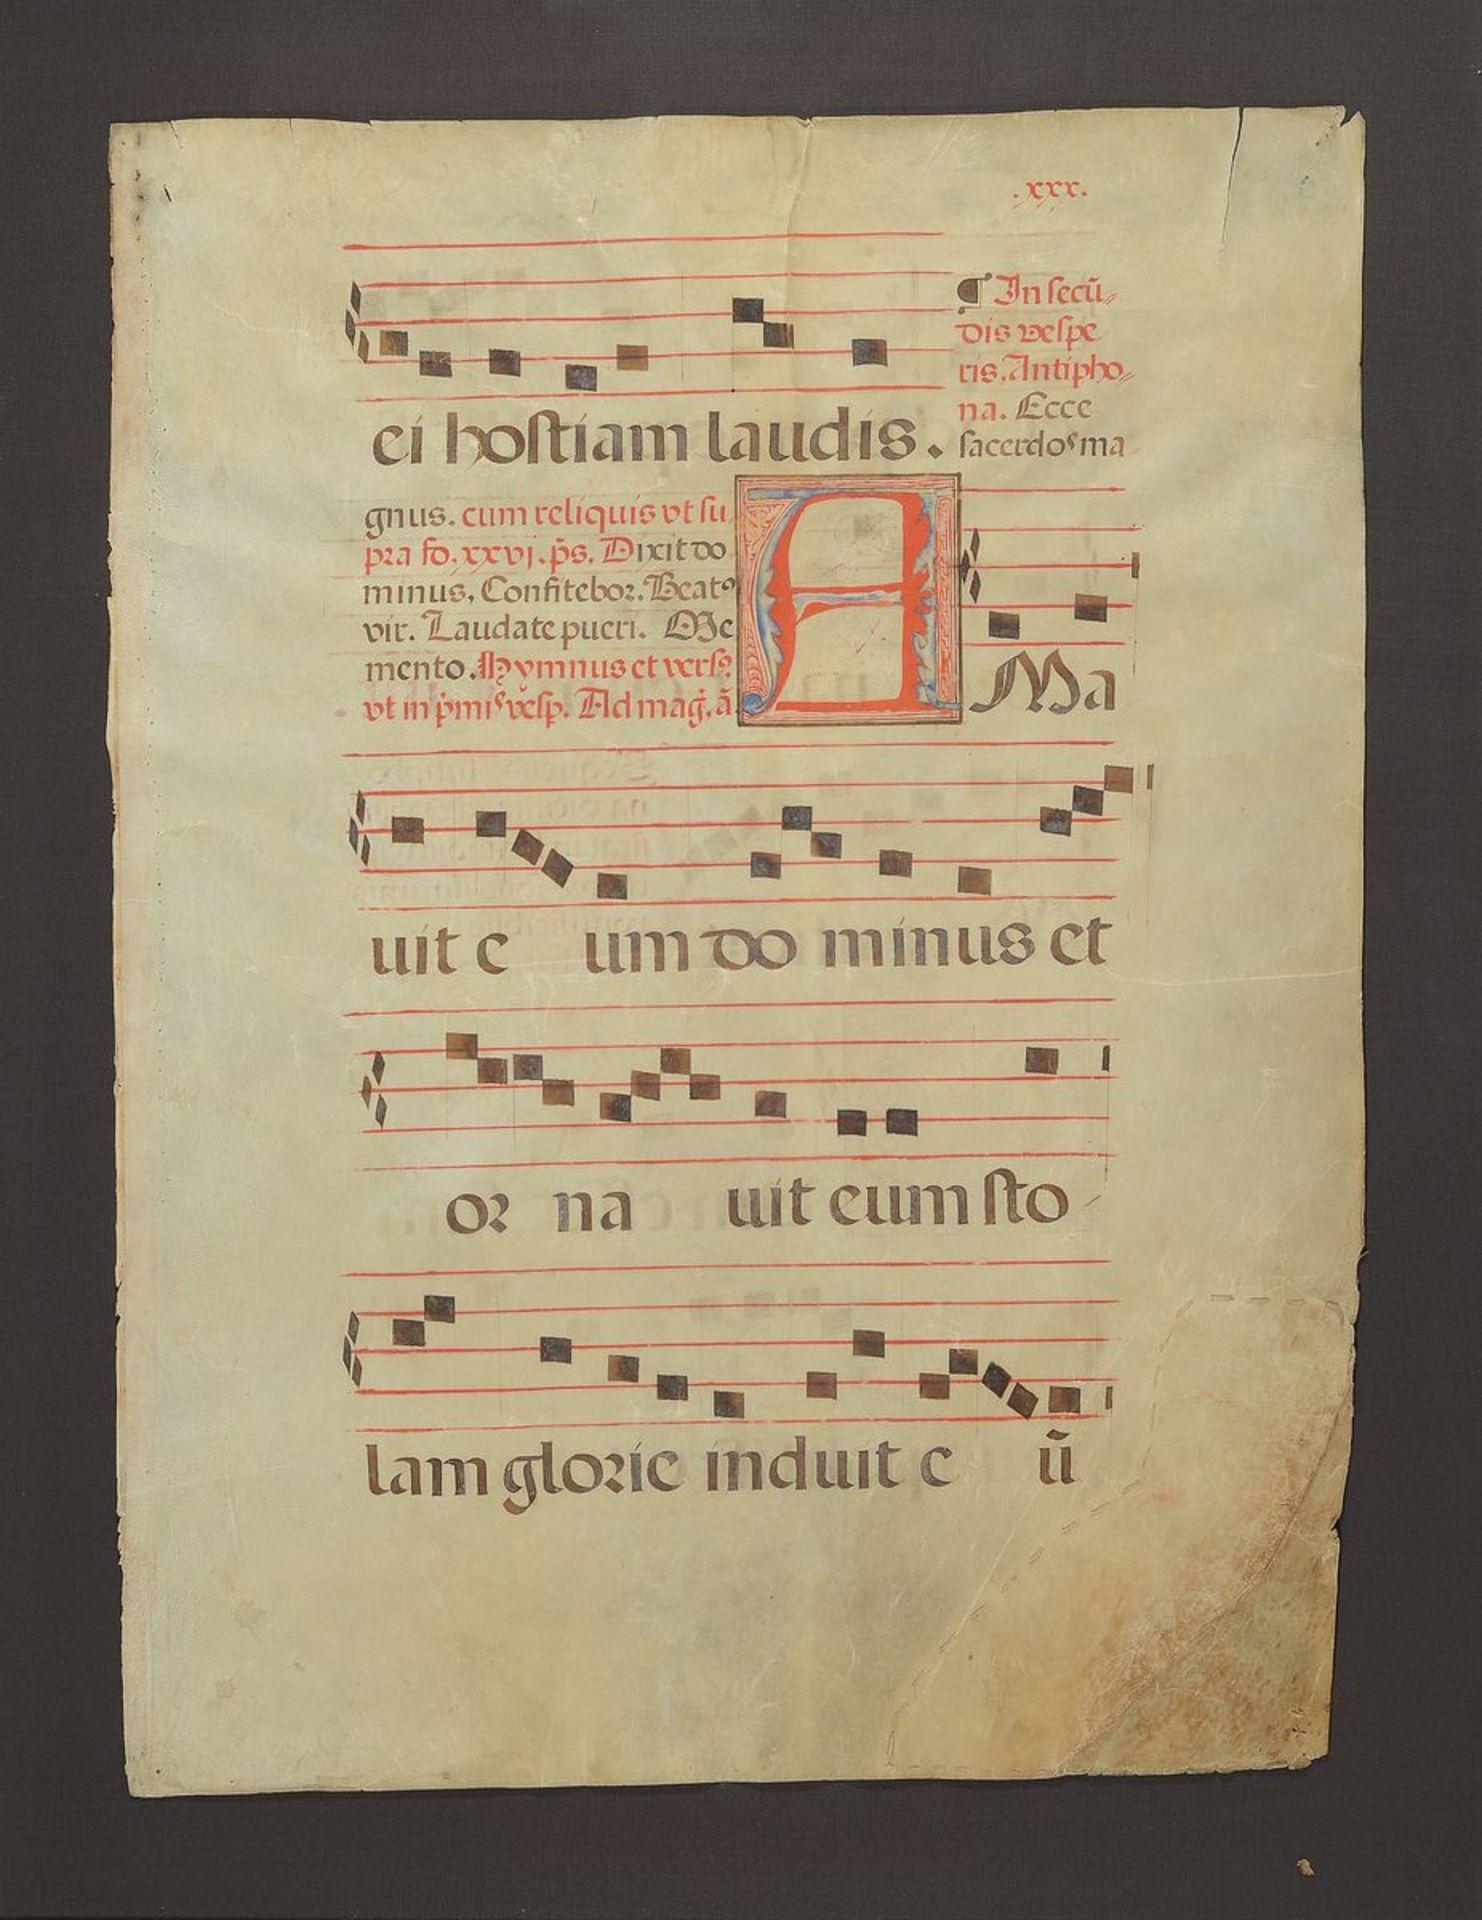 .xxx.
¶ In secū⸗
dis vespe
ris. Antipho⸗
na. Ecce
sacerdoˢ ma
ei hostiam laudis.
gnus. cum reliquis vt su
pra fo. xxvj. p̄s. Dixit do
minus, Confitebor. Beatꝰ
vir. Laudate pueri. Me
mento. Hymnus et versꝰ
vt in p̍miˢ vesp. Ad mag̍. ā
A Ma
uit e um do minus et
or na uit eum sto
lam glorie induit e ū